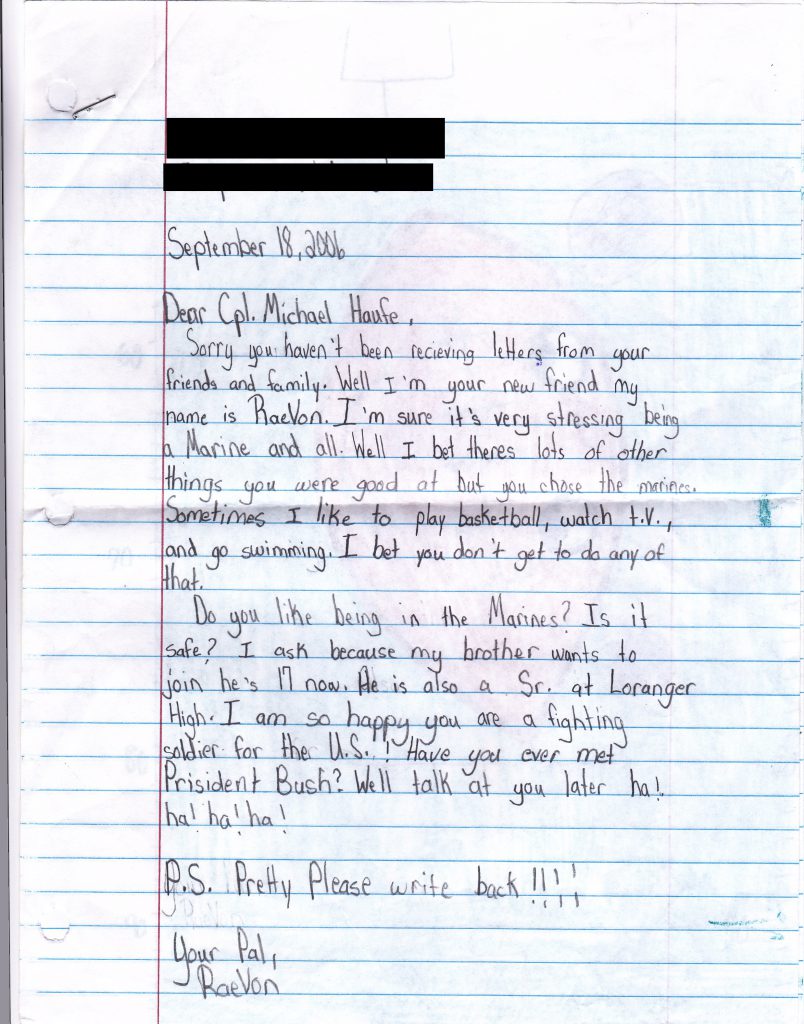 September 18, 2006
Dear Cpl. Michael Haufe,
Sorry you haven't been recieving letters from your
friends and family. Well I'm your new friend my
name is RaeVon. I'm sure it's very stressing being
a Marine and all. Well I bet theres lots of other
things you were good at but you chose the marines.
Sometimes I like to play basketball, watch t.v.,
and go swimming. I bet you don't get to do any of
that.
Do you like being in the Marines? Is it
safe? I ask because my brother wants to
join he's 17 now. He is also a Sr. at Loranger
High. I am so happy you are a fighting
soldier for the U.S.! Have you ever met
Prisident Bush? Well talk at you later ha!
ha! ha! ha!
P.S. Pretty Please write back!!!!!
Your Pal,
RaeVon